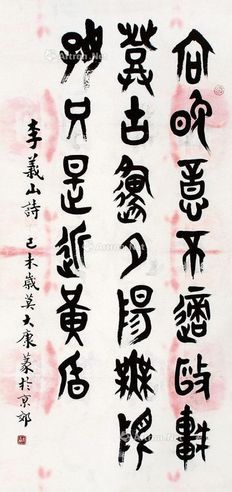 向晚意不適敺車
登古邍夕陽無限
好只是近黃昏
李義山詩 己未歲莫大康篆於京郊